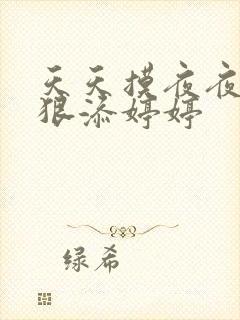 天天摸夜夜
狠添婷婷
绿希